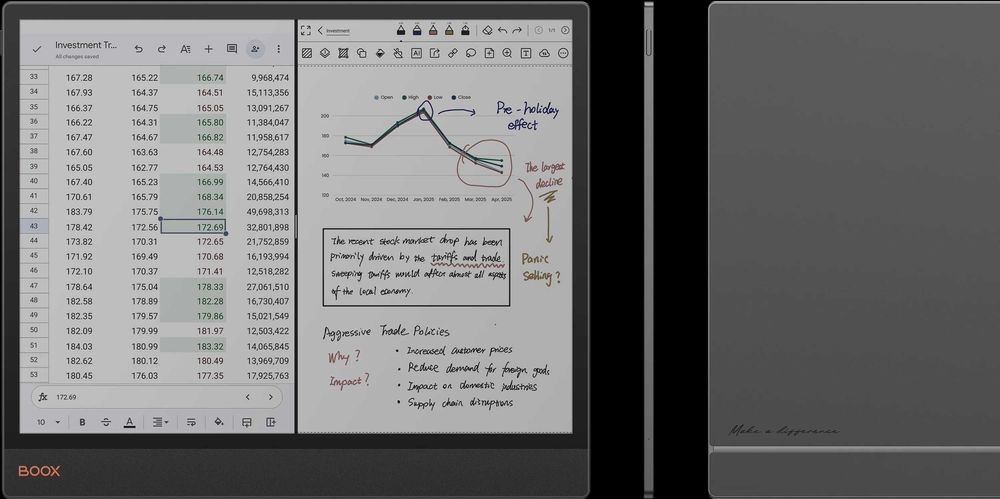 Investment Tr...
All changes saved
33 167.28 165.22 166.74 9,968,474
34 167.93 164.37 164.51 15,113,356
35 166.37 164.75 165.05 13,091,267
36 166.22 164.31 165.80 11,384,047
37 167.47 164.67 166.82 11,958,617
38 167.60 163.63 164.48 12,754,283
39 165.05 162.77 164.53 12,764,430
40 167.40 165.23 166.99 14,566,410
41 170.61 165.79 168.34 20,858,254
42 183.79 175.75 176.14 49,698,313
43 178.42 172.56 172.69 32,801,898
44 173.82 170.31 172.65 21,752,859
45 171.92 169.49 170.68 16,193,994
46 172.10 170.37 171.41 12,518,282
47 178.64 175.04 178.33 27,061,510
48 182.58 178.89 182.28 16,730,407
49 182.35 179.57 179.86 15,021,549
50 182.09 179.99 181.97 12,503,422
51 184.03 180.99 183.32 14,065,845
52 182.62 180.12 180.49 13,969,709
53 180.45 176.03 177.35 17,925,763
fx 172.69
10 B S A
Investment
1/1
AI
T
Open High Low Close
200
180
160
140
120
Oct, 2024 Nov, 2024 Dec, 2024 Jan, 2025 Feb, 2025 Mar, 2025 Apr, 2025
Pre-holiday
effect
The largest
decline
Panic
Selling?
The recent stock market drop has been
primarily driven by the tariffs and trade
sweeping tariffs would affect almost all aspects
of the local economy.
Aggressive Trade Policies
Why?
Impact?
• Increased customer prices
• Reduce demand for foreign goods
• Impact on domestic industries
• Supply chain disruptions
BOOX
Make a difference